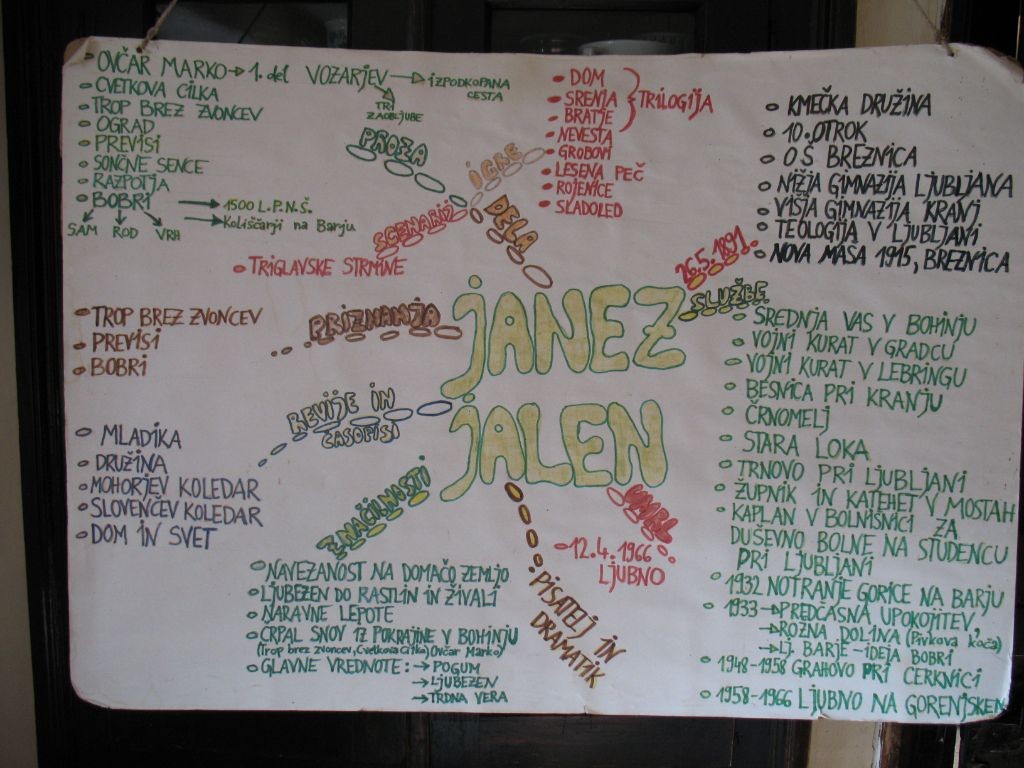 OVČAR MARKO → 1. del VOZARJEV → IZPODKOPANA CESTA
TRI ZAOBLJUBE
CVETKOVA CILKA
TROP BREZ ZVONCEV
OGRAD
PREVISI
SONČNE SENCE
RAZPOTJA
BOBRI → 1500 L.P.N.Š.
→ Koliščarji na Barju
SAM ROD VRH
PROZA
IGRE
SCENARIJ
DELA
TRIGLAVSKE STRMINE
DOM
SRENJA
BRATJE
TRILOGIJA
NEVESTA
GROBOVI
LESENA PEČ
ROJENICE
SLADOLED
KMEČKA DRUŽINA
10. OTROK
OŠ BREZNICA
NIŽJA GIMNAZIJA LJUBLJANA
VIŠJA GIMNAZIJA KRANJ
TEOLOGIJA V LJUBLJANI
NOVA MAŠA 1915, BREZNICA
26.5.1891
SLUŽBE
PRIZNANJA
TROP BREZ ZVONCEV
PREVISI
BOBRI
JANEZ
JALEN
REVIJE IN
ČASOPISI
MLADIKA
DRUŽINA
MOHORJEV KOLEDAR
SLOVENČEV KOLEDAR
DOM IN SVET
SREDNJA VAS V BOHINJU
VOJNI KURAT V GRADCU
VOJNI KURAT V LEBRINGU
BESNICA PRI KRANJU
ČRNOMELJ
STARA LOKA
TRNOVO PRI LJUBLJANI
ŽUPNIK IN KATEHET V MOSTAH
KAPLAN V BOLNIŠNICI ZA
DUŠEVNO BOLNE NA STUDENCU
PRI LJUBLJANI
1932 NOTRANJE GORICE NA BARJU
1933 → PREDČASNA UPOKOJITEV
→ ROŽNA DOLINA (Pirkova koča)
→ LJ. BARJE - IDEJA BOBRI
1948-1958 GRAHOVO PRI CERKNICI
1958-1966 LJUBNO NA GORENJSKEM
ZNAČILNOSTI
NAVEZANOST NA DOMAČO ZEMLJO
LJUBEZEN DO RASTLIN IN ŽIVALI
NARAVNE LEPOTE
ČRPAL SNOV IZ POKRAJINE V BOHINJU
(Trop brez zvoncev, Cvetkova Cilka, Ovčar Marko)
GLAVNE VREDNOTE: → POGUM
→ LJUBEZEN
→ TRDNA VERA
PISATELJ IN
DRAMATIK
UMRL
12.4.1966
LJUBNO